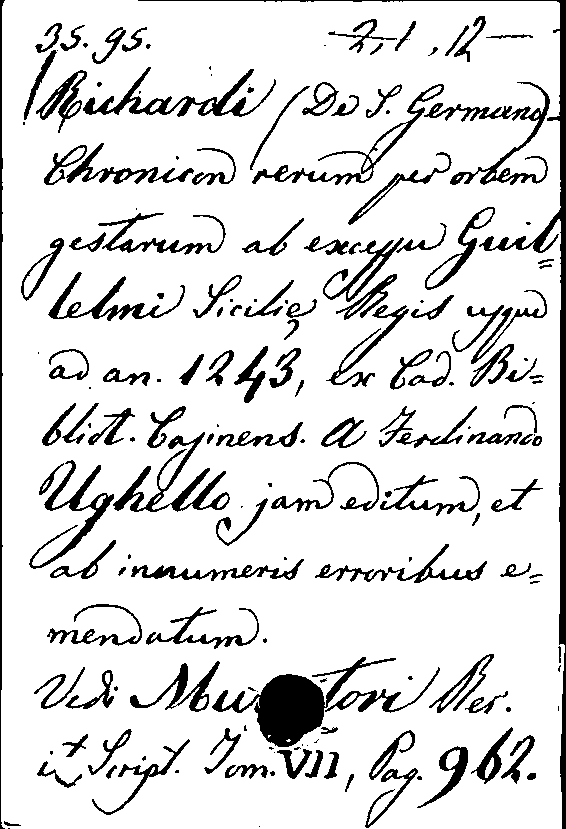 35. 95. 2,1,12
Richardi (De S. Germano)
Chronicon rerum per orbem
gestarum ab excessu Guil=
lelmi Sicilię Regis usque
ad an. 1243, ex Cod. Bi=
bliot. Casinens. A Ferdinando
Ughello jam editum, et
ab innumeris erroribus e=
mendatum.
Vedi Muratori Rer.
it. Script. Tom. VII, Pag. 962.